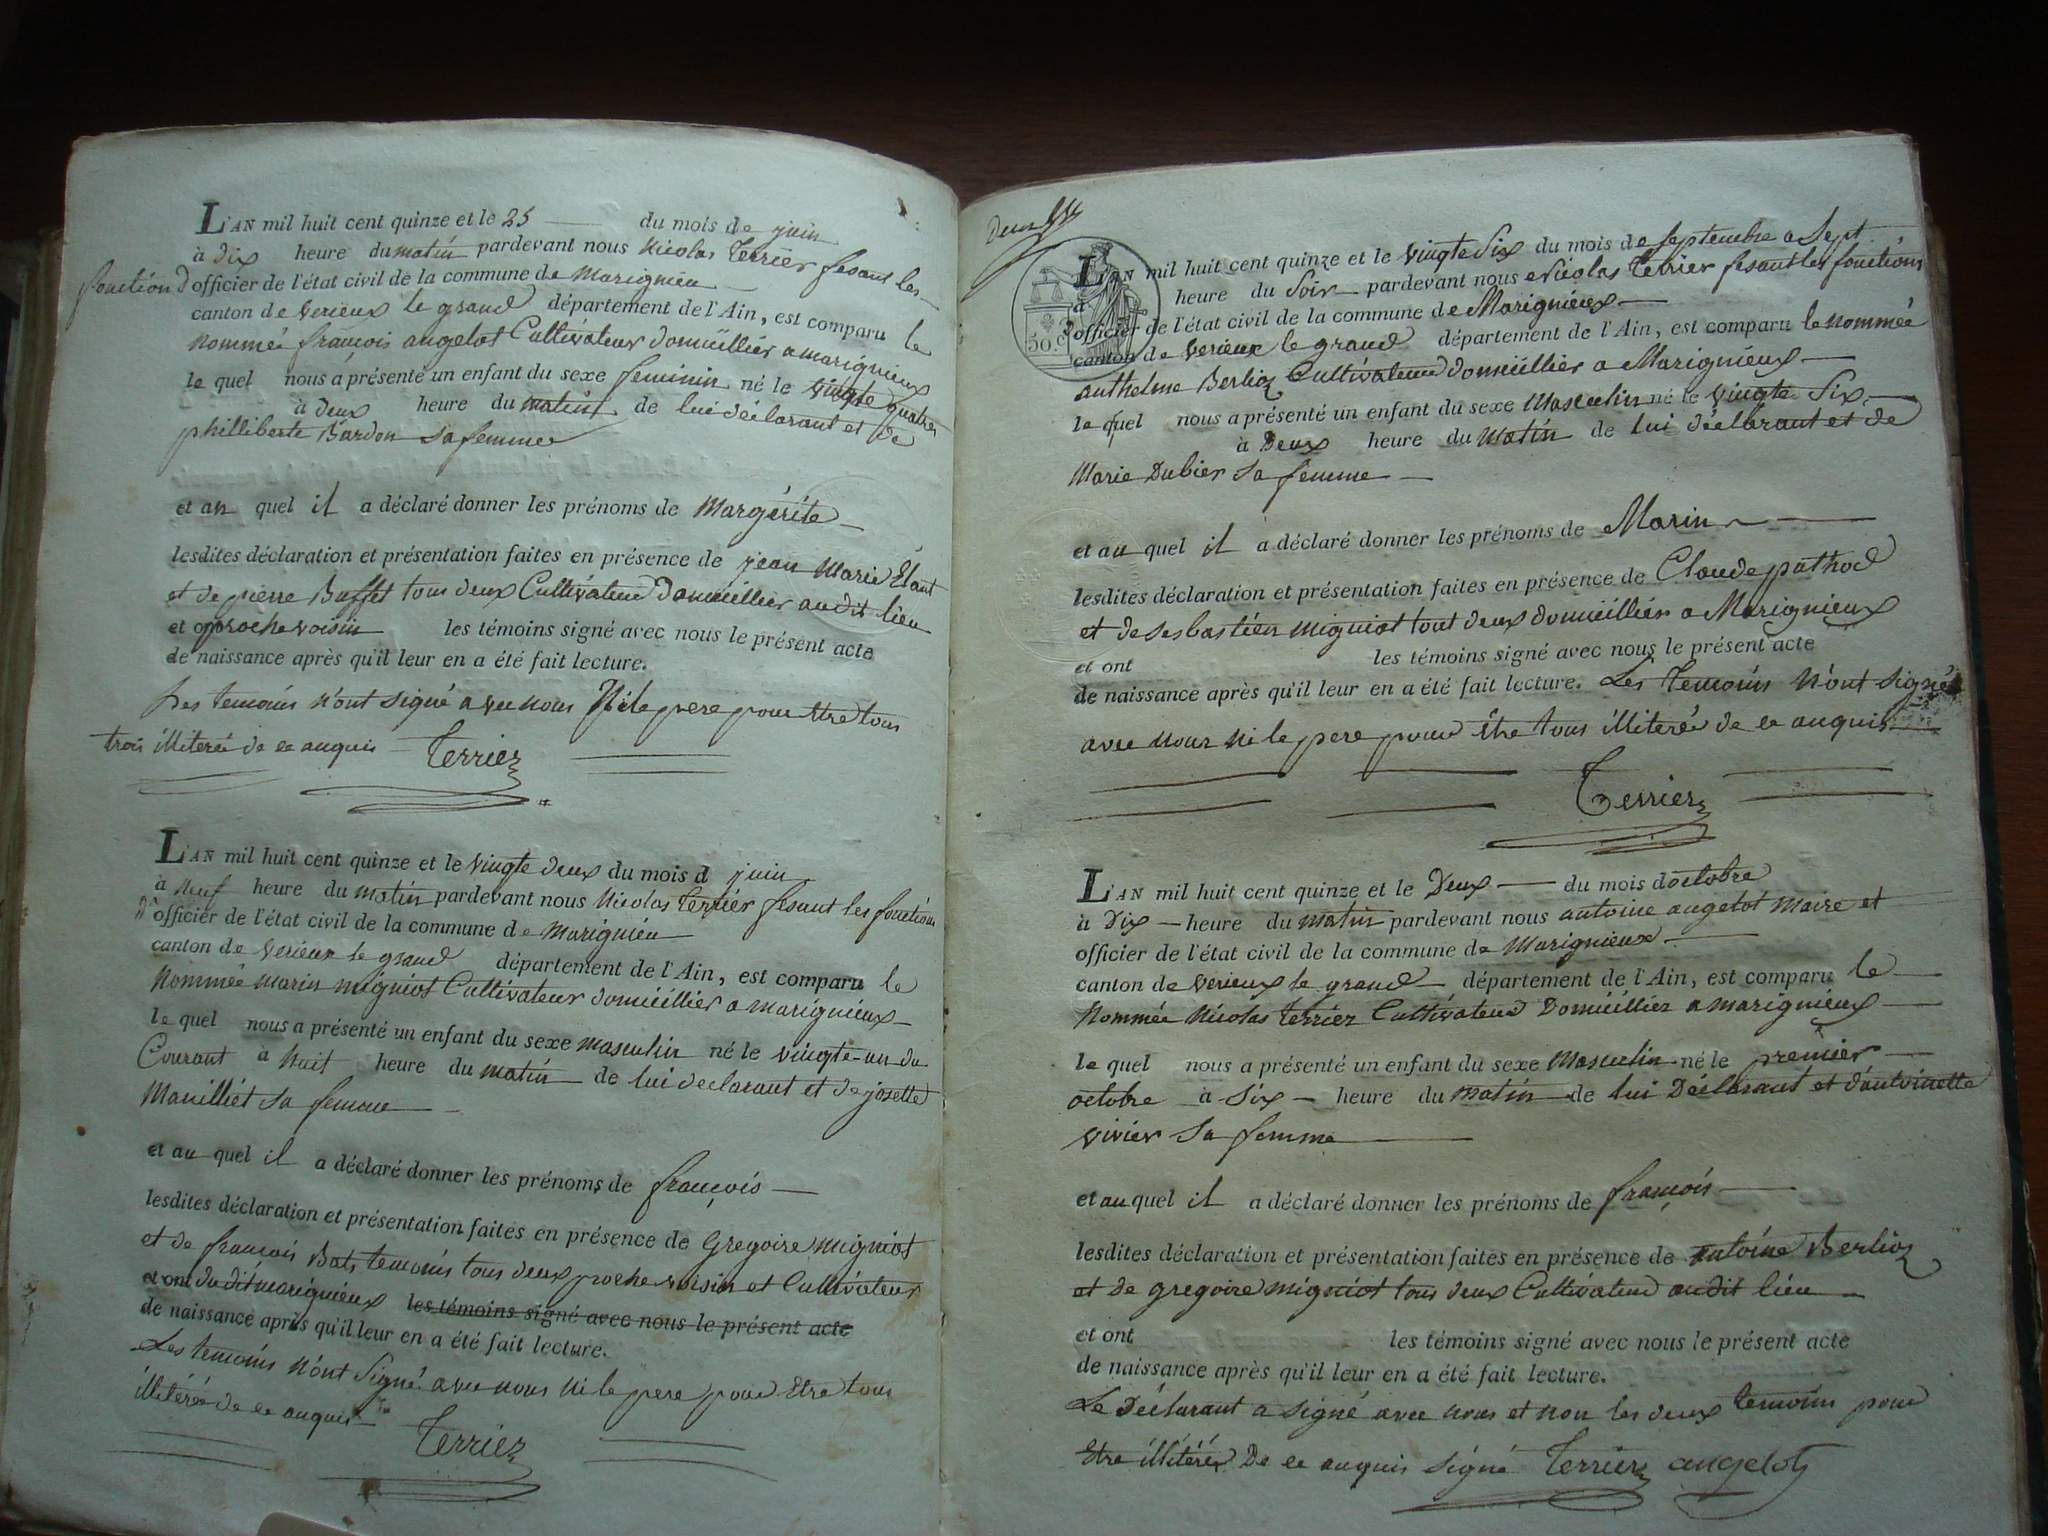 L'AN mil huit cent quinze et le 25 du mois de juin
à Dix heure du matin pardevant nous Nicolas Terrier fesant les
fonction D'officier de l'état civil de la commune de Marignieu
canton de Verieux le grand département de l'Ain, est comparu le
Nommée françois angelot Cultivateur domicillier a marignieux
le quel nous a présenté un enfant du sexe feminin né le vingte quatre
à deux heure du matin de lui déclarant et de
philliberte Bardon sa femme
et au quel il a déclaré donner les prénoms de Margérite
lesdites déclaration et présentation faites en présence de jean Marie
et de pierre Buffet tous deux Cultivateur Domicillier audit lieu
et proche voisin les témoins signé avec nous le présent acte
de naissance après qu'il leur en a été fait lecture.
Les temoins n'ont signé avec nous Ni le pere pour Etre tous
trois illiteré de ce anquis Terrier
L'AN mil huit cent quinze et le vingte deux du mois d juin
à Neuf heure du matin pardevant nous Nicolas Terrier fesant les fonctions
D'officier de l'état civil de la commune de Marignieu
canton de Verieux le grand département de l'Ain, est comparu le
Nommée marin migniot Cultivateur domicillier a marignieux
le quel nous a présenté un enfant du sexe masculin né le vingte-un du
Courant à huit heure du matin de lui declarant et de josette
Manilliet sa femme
et au quel il a déclaré donner les prénoms de françois
lesdites déclaration et présentation faites en présence de Gregoire migniot
et de françois Bats temoins tous deux proche voisin et Cultivateur
et ont dudit marignieux les témoins signé avec nous le présent acte
de naissance après qu'il leur en a été fait lecture.
Les temoins n'ont Signé avec nous ni le pere pour Etre tous
illitéré de ce anquis Terrier
Deux
50. C
L'AN mil huit cent quinze et le vingte Six du mois de septembre a Sept
à heure du Soir pardevant nous Nicolas Terrier fesant les fonctions
d'officier de l'état civil de la commune de Marignieux
canton de Verieux le grand département de l'Ain, est comparu le nommée
anthelme Berlioz Cultivateur domicillier a Marignieux
le quel nous a présenté un enfant du sexe Masculin né le vingte Six
à Deux heure du Matin de lui déclarant et de
Marie Dubier sa femme
et au quel il a déclaré donner les prénoms de Marin
lesdites déclaration et présentation faites en présence de Claude pathod
et de sesbastien migniot tout deux domicillier a Marignieux
et ont les témoins signé avec nous le présent acte
de naissance après qu'il leur en a été fait lecture. Les Temoins N'ont Signé
avec nous ni le pere pour être tous illiteré de ce anquis
Terrier
L'AN mil huit cent quinze et le Deux du mois doctobre
à Dix heure du matin pardevant nous antoine angelot maire et
officier de l'état civil de la commune de Marignieux
canton de Verieux le grand département de l'Ain, est comparu le
Nommée Nicolas Terrier Cultivateur Domicillier a marignieux
le quel nous a présenté un enfant du sexe Masculin né le premier
octobre à Six heure du Matin de lui Déclarant et d'antoinette
vivier sa femme
et au quel il a déclaré donner les prénoms de françois
lesdites déclaration et présentation faites en présence de antoine Berlioz
et de gregoire migniot tous deux Cultivateur audit lieu
et ont les témoins signé avec nous le présent acte
de naissance après qu'il leur en a été fait lecture.
Le Déclarant a signé avec nous et non les deux temoins pour
Etre illitéré De ce anquis signé Terrier angelot